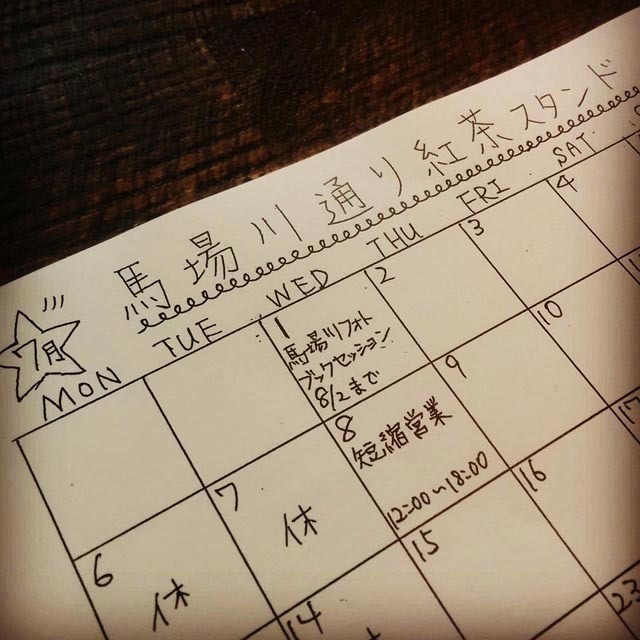 馬場川通り紅茶スタンド
7月
MON TUE WED THU FRI SAT
1 2 3 4
馬場川フォト
ブックセッション
8/2まで
6 7 8 9 10
休 休 短縮営業
12:00〜18:00
14 15 16 17
23